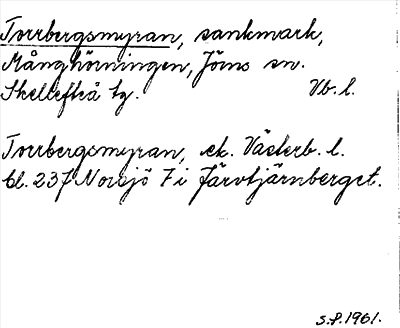 Torrbergsmyran, sankmark,
Månghörningen, Jörns sn.
Skellefteå tg. Vb. l.
Torrbergsmyran, ek. Västerb. l.
bl. 237 Norsjö 7 i Järvtjärnberget.
S.P. 1961.